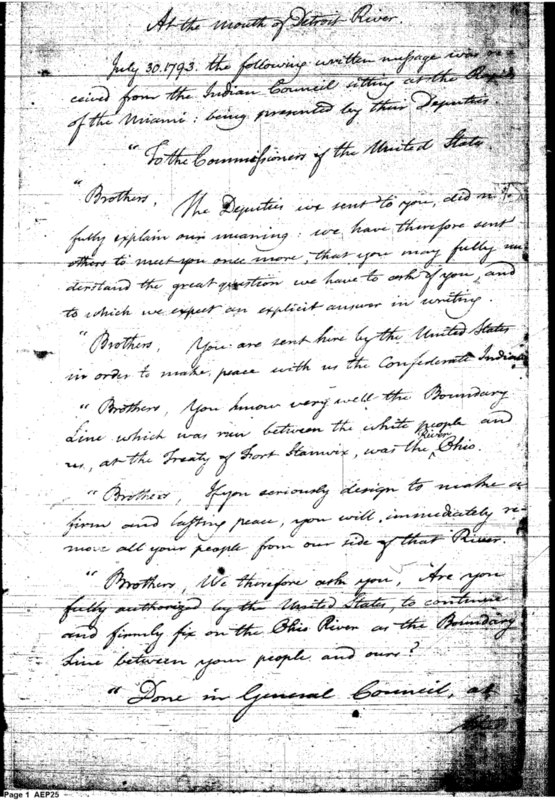 At the mouth of Detroit River.
July 30. 1793. the following written message was re-
ceived from the Indian Council sitting at the Rapids
of the Miami: being presented by their Deputies.
"To the Commissioners of the United States.
"Brothers, The Deputies we sent to you, did not
fully explain our meaning: we have therefore sent
others to meet you once more, that you may fully un-
derstand the great question we have to ask of you, and
to which we expect an explicit answer in writing.
"Brothers, You are sent here by the United States
in order to make peace with us the Confederate Indians
"Brothers, You know very well the Boundary
Line which was run between the white people and
us, at the Treaty of Fort Stanwix, was the River Ohio.
"Brothers, If you seriously design to make a
firm and lasting peace, you will immediately re-
move all your people from our side of that River.
"Brothers, We therefore ask you, Are you
fully authorized by the United States, to continue
and firmly fix on the Ohio River as the Boundary
Line between your people and ours?
"Done in General Council, at
Page 1 AEP25